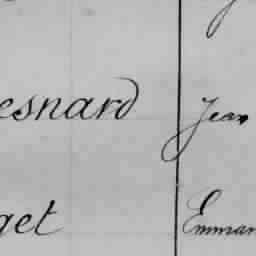 esnard Jean
get Emman